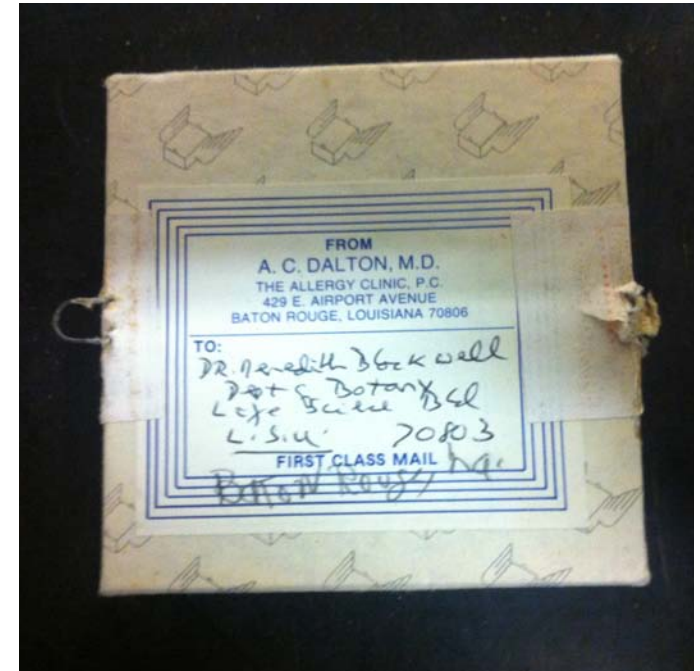 FROM
A. C. DALTON, M.D.
THE ALLERGY CLINIC, P.C.
429 E. AIRPORT AVENUE
BATON ROUGE, LOUISIANA 70806
TO:
DR. Meredith Blackwell
Dept of Botany
Life Science Bld
L.S.U. 70803
FIRST CLASS MAIL
Baton Rouge, La.